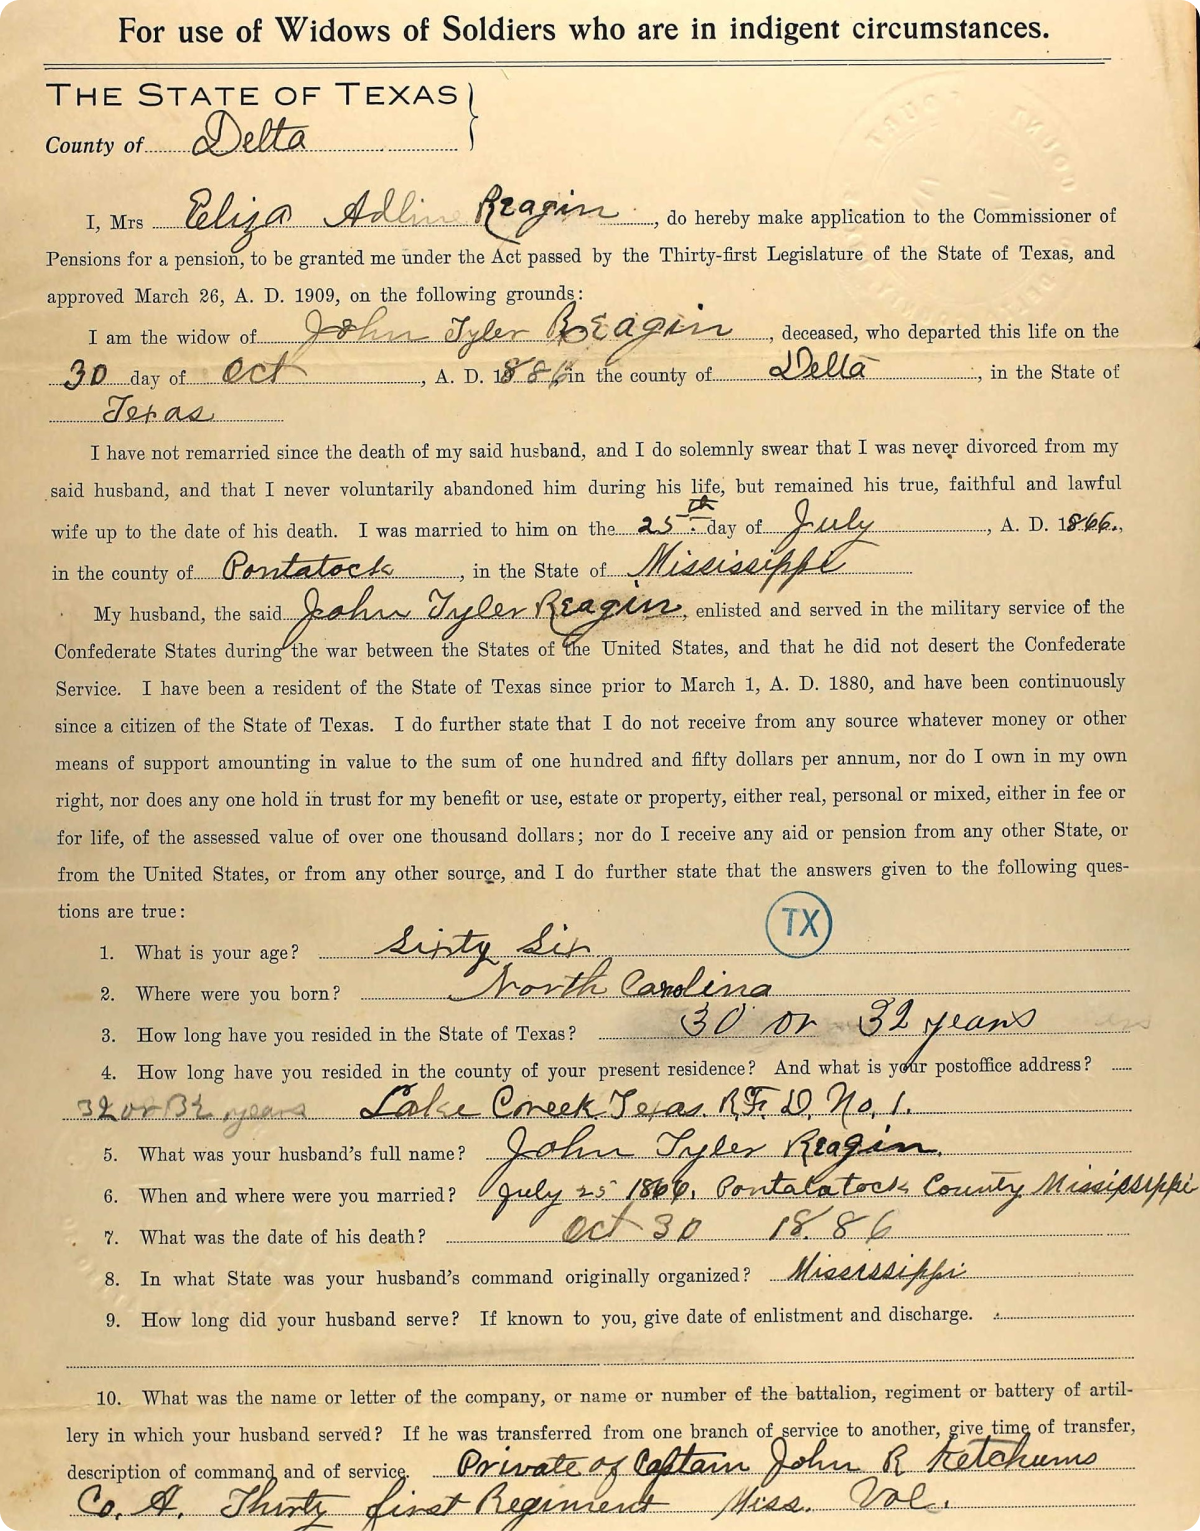 For use of Widows of Soldiers who are in indigent circumstances.
THE STATE OF TEXAS
County of Delta
I, Mrs Eliza Adline Reagin, do hereby make application to the Commissioner of
Pensions for a pension, to be granted me under the Act passed by the Thirty-first Legislature of the State of Texas, and
approved March 26, A. D. 1909, on the following grounds:
I am the widow of John Tyler Reagin, deceased, who departed this life on the
30 day of Oct, A. D. 1886, in the county of Delta, in the State of
Texas
I have not remarried since the death of my said husband, and I do solemnly swear that I was never divorced from my
said husband, and that I never voluntarily abandoned him during his life, but remained his true, faithful and lawful
wife up to the date of his death. I was married to him on the 25th day of July, A. D. 1866.,
in the county of Pontatock, in the State of Mississippi
My husband, the said John Tyler Reagin, enlisted and served in the military service of the
Confederate States during the war between the States of the United States, and that he did not desert the Confederate
Service. I have been a resident of the State of Texas since prior to March 1, A. D. 1880, and have been continuously
since a citizen of the State of Texas. I do further state that I do not receive from any source whatever money or other
means of support amounting in value to the sum of one hundred and fifty dollars per annum, nor do I own in my own
right, nor does any one hold in trust for my benefit or use, estate or property, either real, personal or mixed, either in fee or
for life, of the assessed value of over one thousand dollars; nor do I receive any aid or pension from any other State, or
from the United States, or from any other source, and I do further state that the answers given to the following ques-
tions are true:
TX
1. What is your age? Sixty Six
2. Where were you born? North Carolina
3. How long have you resided in the State of Texas? 30 or 32 years
4. How long have you resided in the county of your present residence? And what is your postoffice address?
or 32 years Lake Creek Texas. R.F.D. No. 1.
5. What was your husband's full name? John Tyler Reagin.
6. When and where were you married? July 25 1866. Pontalatock County Mississippi
7. What was the date of his death? Oct 30 1886
8. In what State was your husband's command originally organized? Mississippi
9. How long did your husband serve? If known to you, give date of enlistment and discharge.
10. What was the name or letter of the company, or name or number of the battalion, regiment or battery of artil-
lery in which your husband served? If he was transferred from one branch of service to another, give time of transfer,
description of command and of service. Private of Captain John R Ketchums
Co. A. Thirty first Regiment Miss. Vol.